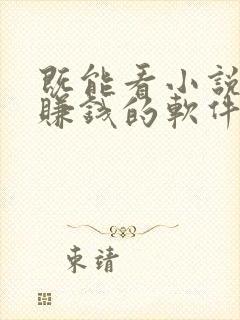 既能看小說
賺錢的軟件
東靖